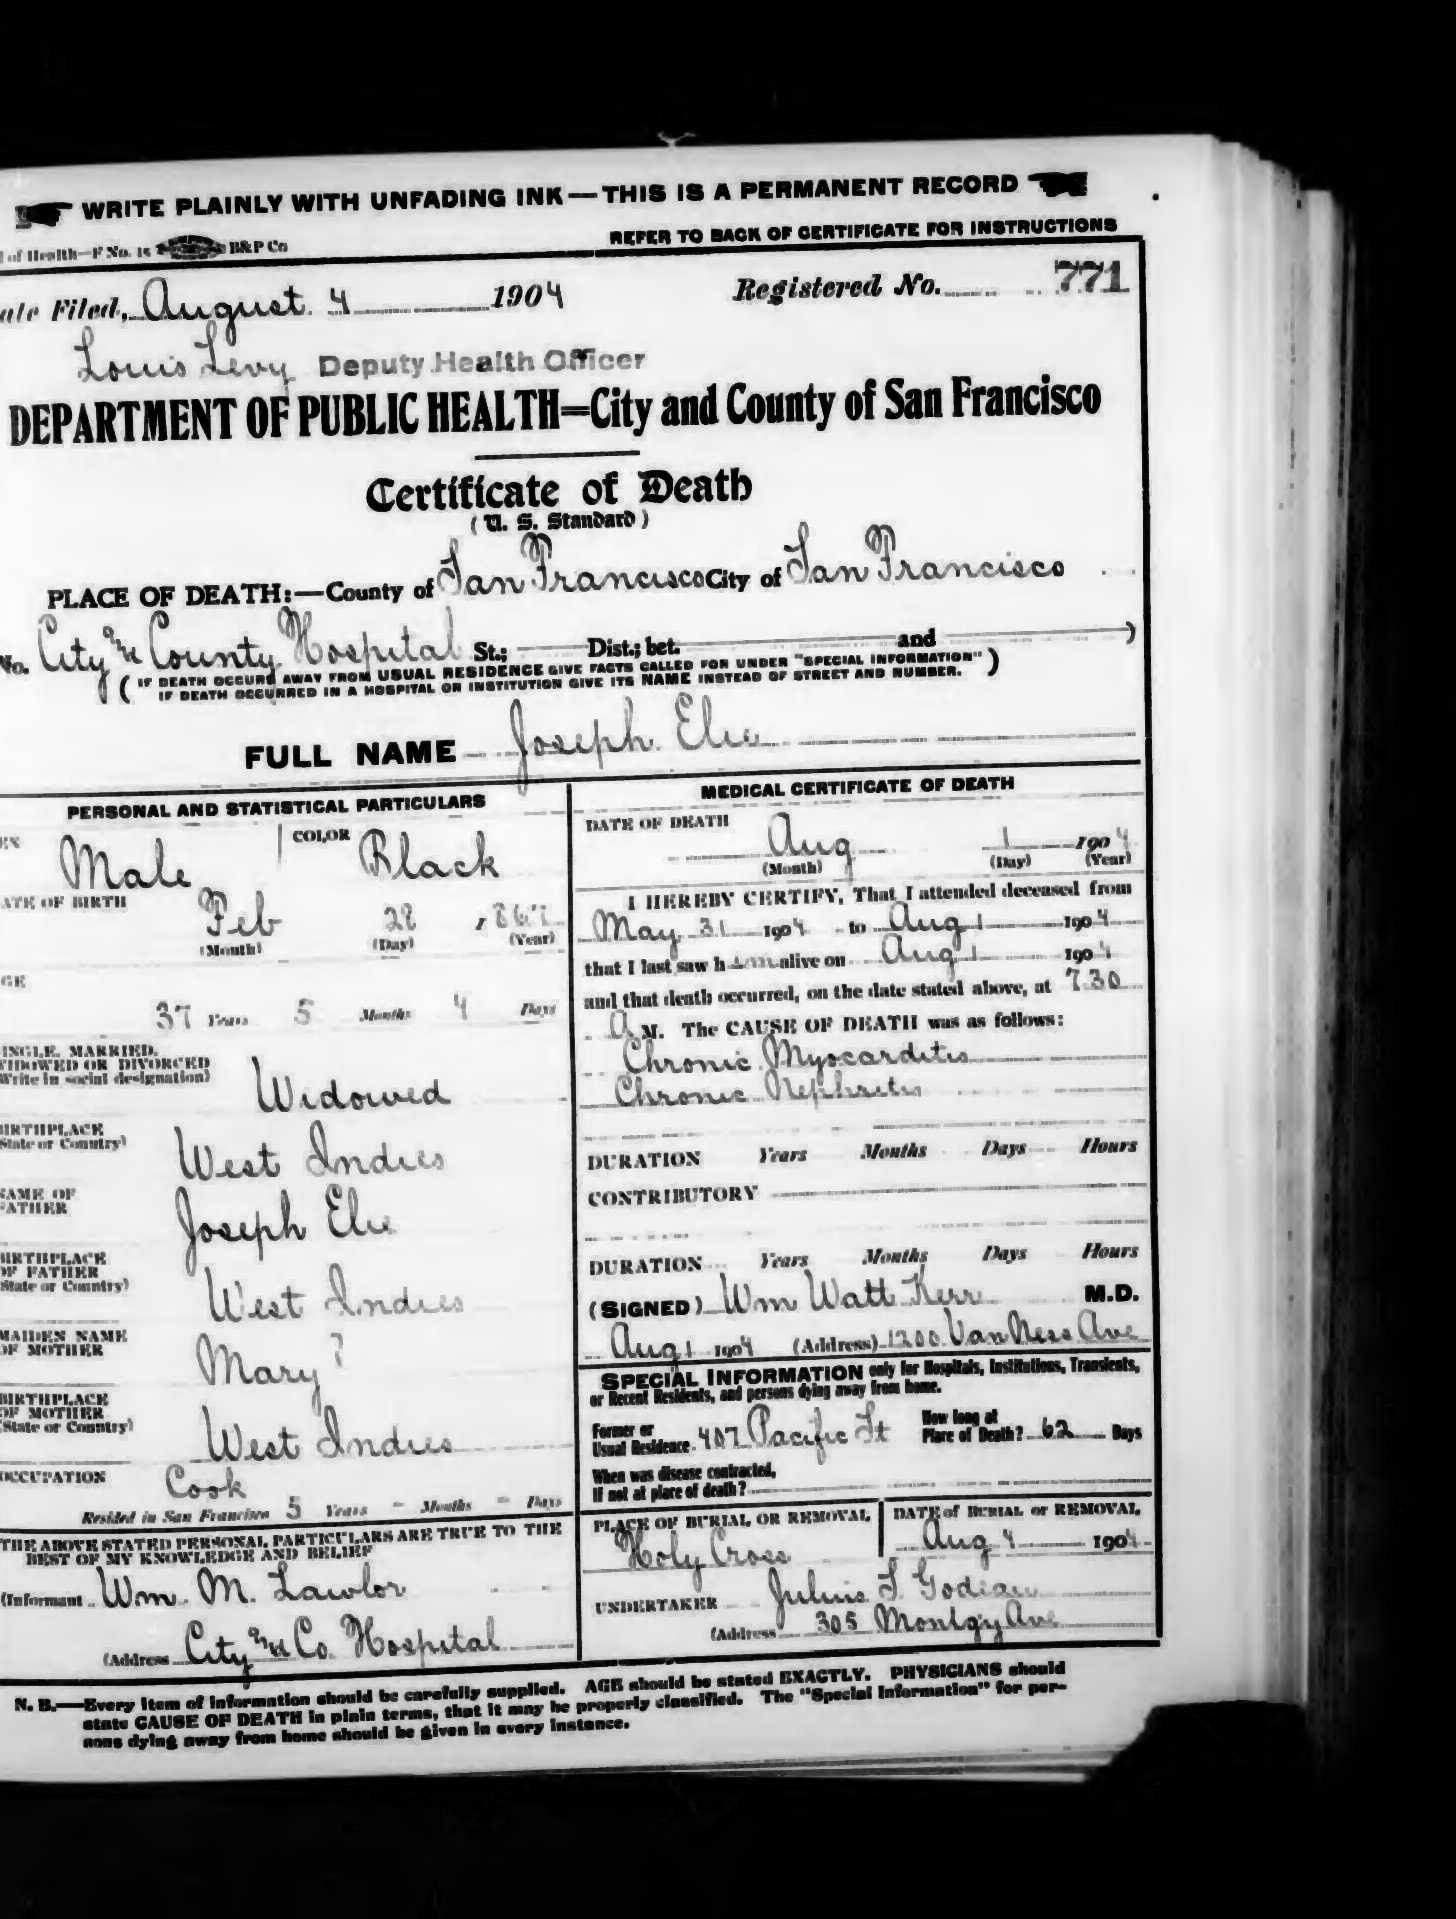 WRITE PLAINLY WITH UNFADING INK—THIS IS A PERMANENT RECORD
of Health—F No. 15 B&P Co
REFER TO BACK OF CERTIFICATE FOR INSTRUCTIONS
ate Filed, August 4 1904 Registered No. 771
Louis Levy Deputy Health Officer
DEPARTMENT OF PUBLIC HEALTH=City and County of San Francisco
Certificate of Death
(U. S. Standard)
PLACE OF DEATH:—County of San Francisco City of San Francisco
No. City and County Hospital St.; Dist.; bet. and )
( IF DEATH OCCURS AWAY FROM USUAL RESIDENCE GIVE FACTS CALLED FOR UNDER "SPECIAL INFORMATION" )
IF DEATH OCCURRED IN A HOSPITAL OR INSTITUTION GIVE ITS NAME INSTEAD OF STREET AND NUMBER.
FULL NAME Joseph Elie
PERSONAL AND STATISTICAL PARTICULARS
EX Male COLOR Black
ATE OF BIRTH
Feb 28 1867
(Month) (Day) (Year)
GE
37 Years 5 Months 4 Days
INGLE, MARRIED,
IDOWED OR DIVORCED
Write in social designation)
Widowed
BIRTHPLACE
State or Country)
West Indies
NAME OF
FATHER
Joseph Elie
BIRTHPLACE
OF FATHER
State or Country)
West Indies
MAIDEN NAME
OF MOTHER
Mary ?
BIRTHPLACE
OF MOTHER
(State or Country)
West Indies
OCCUPATION Cook
Resided in San Francisco 5 Years - Months - Days
THE ABOVE STATED PERSONAL PARTICULARS ARE TRUE TO THE
BEST OF MY KNOWLEDGE AND BELIEF
(Informant Wm. M. Lawlor
(Address City and Co. Hospital
MEDICAL CERTIFICATE OF DEATH
DATE OF DEATH
Aug 1 1904
(Month) (Day) (Year)
I HEREBY CERTIFY, That I attended deceased from
May 31 1904 to Aug 1 1904
that I last saw him alive on Aug 1 1904
and that death occurred, on the date stated above, at 7.30
A M. The CAUSE OF DEATH was as follows:
Chronic Myocarditis
Chronic Nephritis
DURATION Years Months Days Hours
CONTRIBUTORY
DURATION Years Months Days Hours
(SIGNED) Wm Watt Kerr M.D.
Aug 1 1904 (Address) 1200 Van Ness Ave
SPECIAL INFORMATION only for Hospitals, Institutions, Transients,
or Recent Residents, and persons dying away from home.
Former or
Usual Residence 407 Pacific St
How long at
Place of Death? 62 Days
When was disease contracted,
If not at place of death?
PLACE OF BURIAL OR REMOVAL
Holy Cross
DATE of BURIAL or REMOVAL
Aug 4 1904
UNDERTAKER Julius S. Godeau
(Address 305 Montgy Ave
N. B.—Every item of information should be carefully supplied. AGE should be stated EXACTLY. PHYSICIANS should
state CAUSE OF DEATH in plain terms, that it may be properly classified. The "Special Information" for per-
sons dying away from home should be given in every instance.